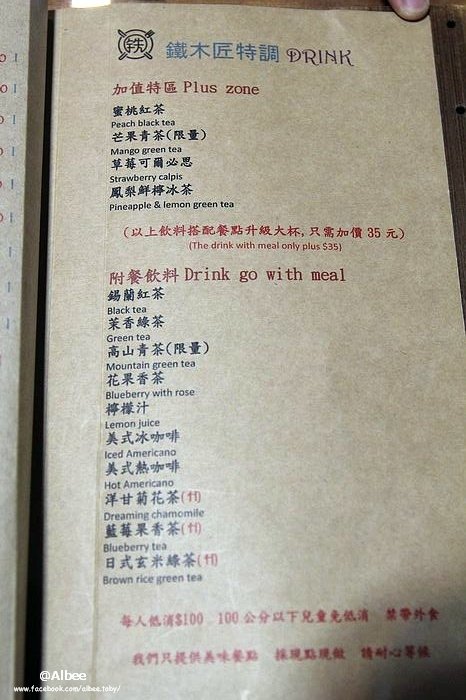 鐵 鐵木匠特調 DRINK
加值特區 Plus zone
蜜桃紅茶
Peach black tea
芒果青茶(限量)
Mango green tea
草莓可爾必思
Strawberry calpis
鳳梨鮮檸冰茶
Pineapple & lemon green tea
(以上飲料搭配餐點升級大杯,只需加價 35 元)
(The drink with meal only plus $35)
附餐飲料 Drink go with meal
錫蘭紅茶
Black tea
茉香綠茶
Green tea
高山青茶(限量)
Mountain green tea
花果香茶
Blueberry with rose
檸檬汁
Lemon juice
美式冰咖啡
Iced Americano
美式熱咖啡
Hot Americano
洋甘菊花茶(H)
Dreaming chamomile
藍莓果香茶(H)
Blueberry tea
日式玄米綠茶(H)
Brown rice green tea
每人低消$100 100公分以下兒童免低消 禁帶外食
我們只提供美味餐點 採現點現做 請耐心等候
@Albee
www.facebook.com/albee.toby/